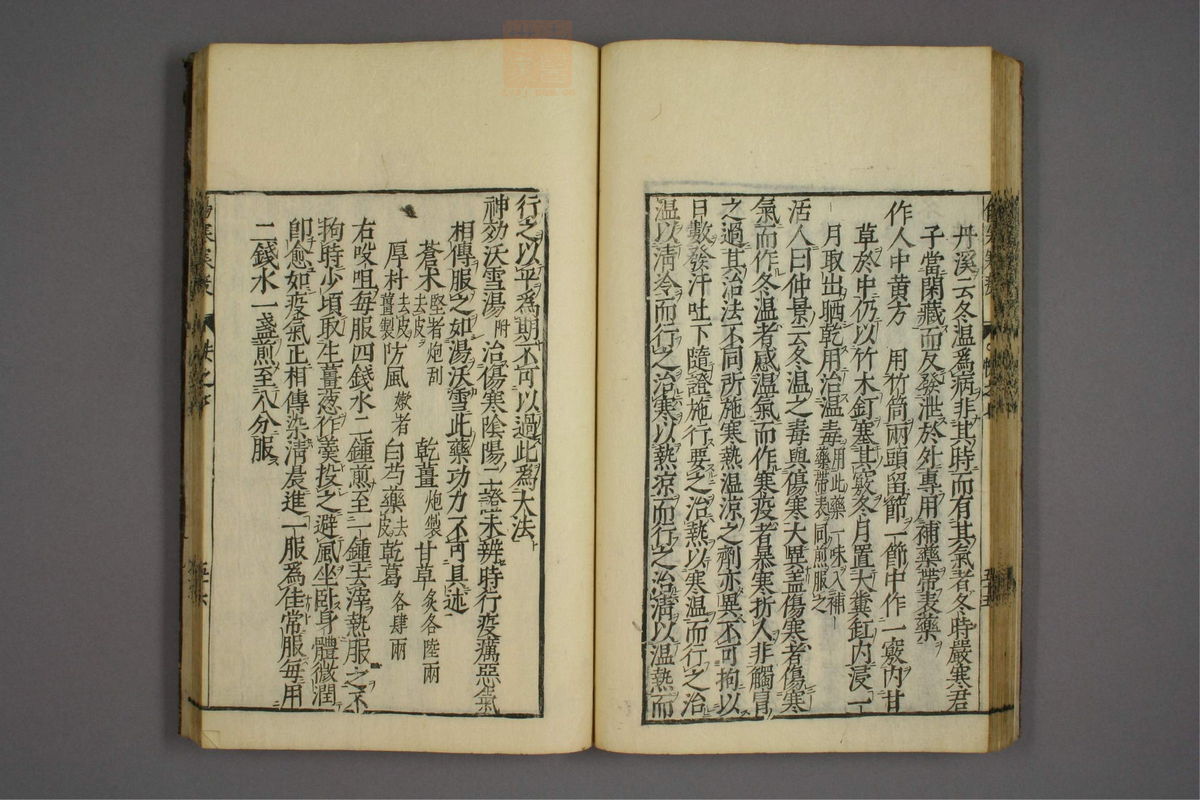 丹溪云冬温爲病非其時而有其氣者冬時嚴寒君
子當閉藏而反發泄於外專用補藥帶表藥
作人中黄方 用竹筒兩頭留節一節中作一竅内甘
草於中仍以竹木釘塞其竅冬月置大糞缸内浸一
月取出晒乾用治温毒用此藥一味入補藥帶表同煎服之
活人曰仲景云冬温之毒與傷寒大異盖傷寒者傷寒
氣而作冬温者感温氣而作寒疫者暴寒折人非觸冒
之過其治法不同所施寒熱温涼之劑亦異不可拘以
日數發汗吐下隨證施行要之治熱以寒温而行之治
温以清冷而行之治寒以熱凉而行之治清以温熱而
行之以平爲期不可以過此爲大法
神効沃雪湯附 治傷寒陰陽二證未辨時行疫癘惡氣
相傳服之如湯沃雪此藥功力不可具述
蒼术堅者炮刮去皮 乾薑炮製 甘草炙各陸兩
厚朴去皮薑製 防風嫩者 白芍藥去皮 乾葛各肆兩
右㕮咀每服四錢水二鍾煎至一鍾去滓熱服之不
拘時少頃取生薑葱作羹投之避風坐卧身體微潤
即愈如疫氣正相傳染清晨進一服爲佳常服每用
二錢水一盞煎至八分服